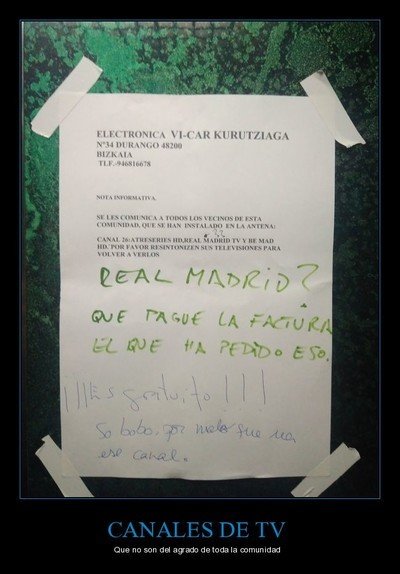 ELECTRONICA VI-CAR KURUTZIAGA
Nº34 DURANGO 48200
BIZKAIA
TLF.-946816678
NOTA INFORMATIVA.
SE LES COMUNICA A TODOS LOS VECINOS DE ESTA
COMUNIDAD, QUE SE HAN INSTALADO EN LA ANTENA:
CANAL 26:ATRESERIES HD,REAL MADRID TV Y BE MAD
HD.'POR FAVOR RESINTONIZEN SUS TELEVISIONES PARA
VOLVER A VERLOS
REAL MADRID?
QUE PAGUE LA FACTURA
EL QUE HA PEDIDO ESO.
¡¡¡Es gratuito!!!
So bobo, por
ese canal.
CANALES DE TV
Que no son del agrado de toda la comunidad